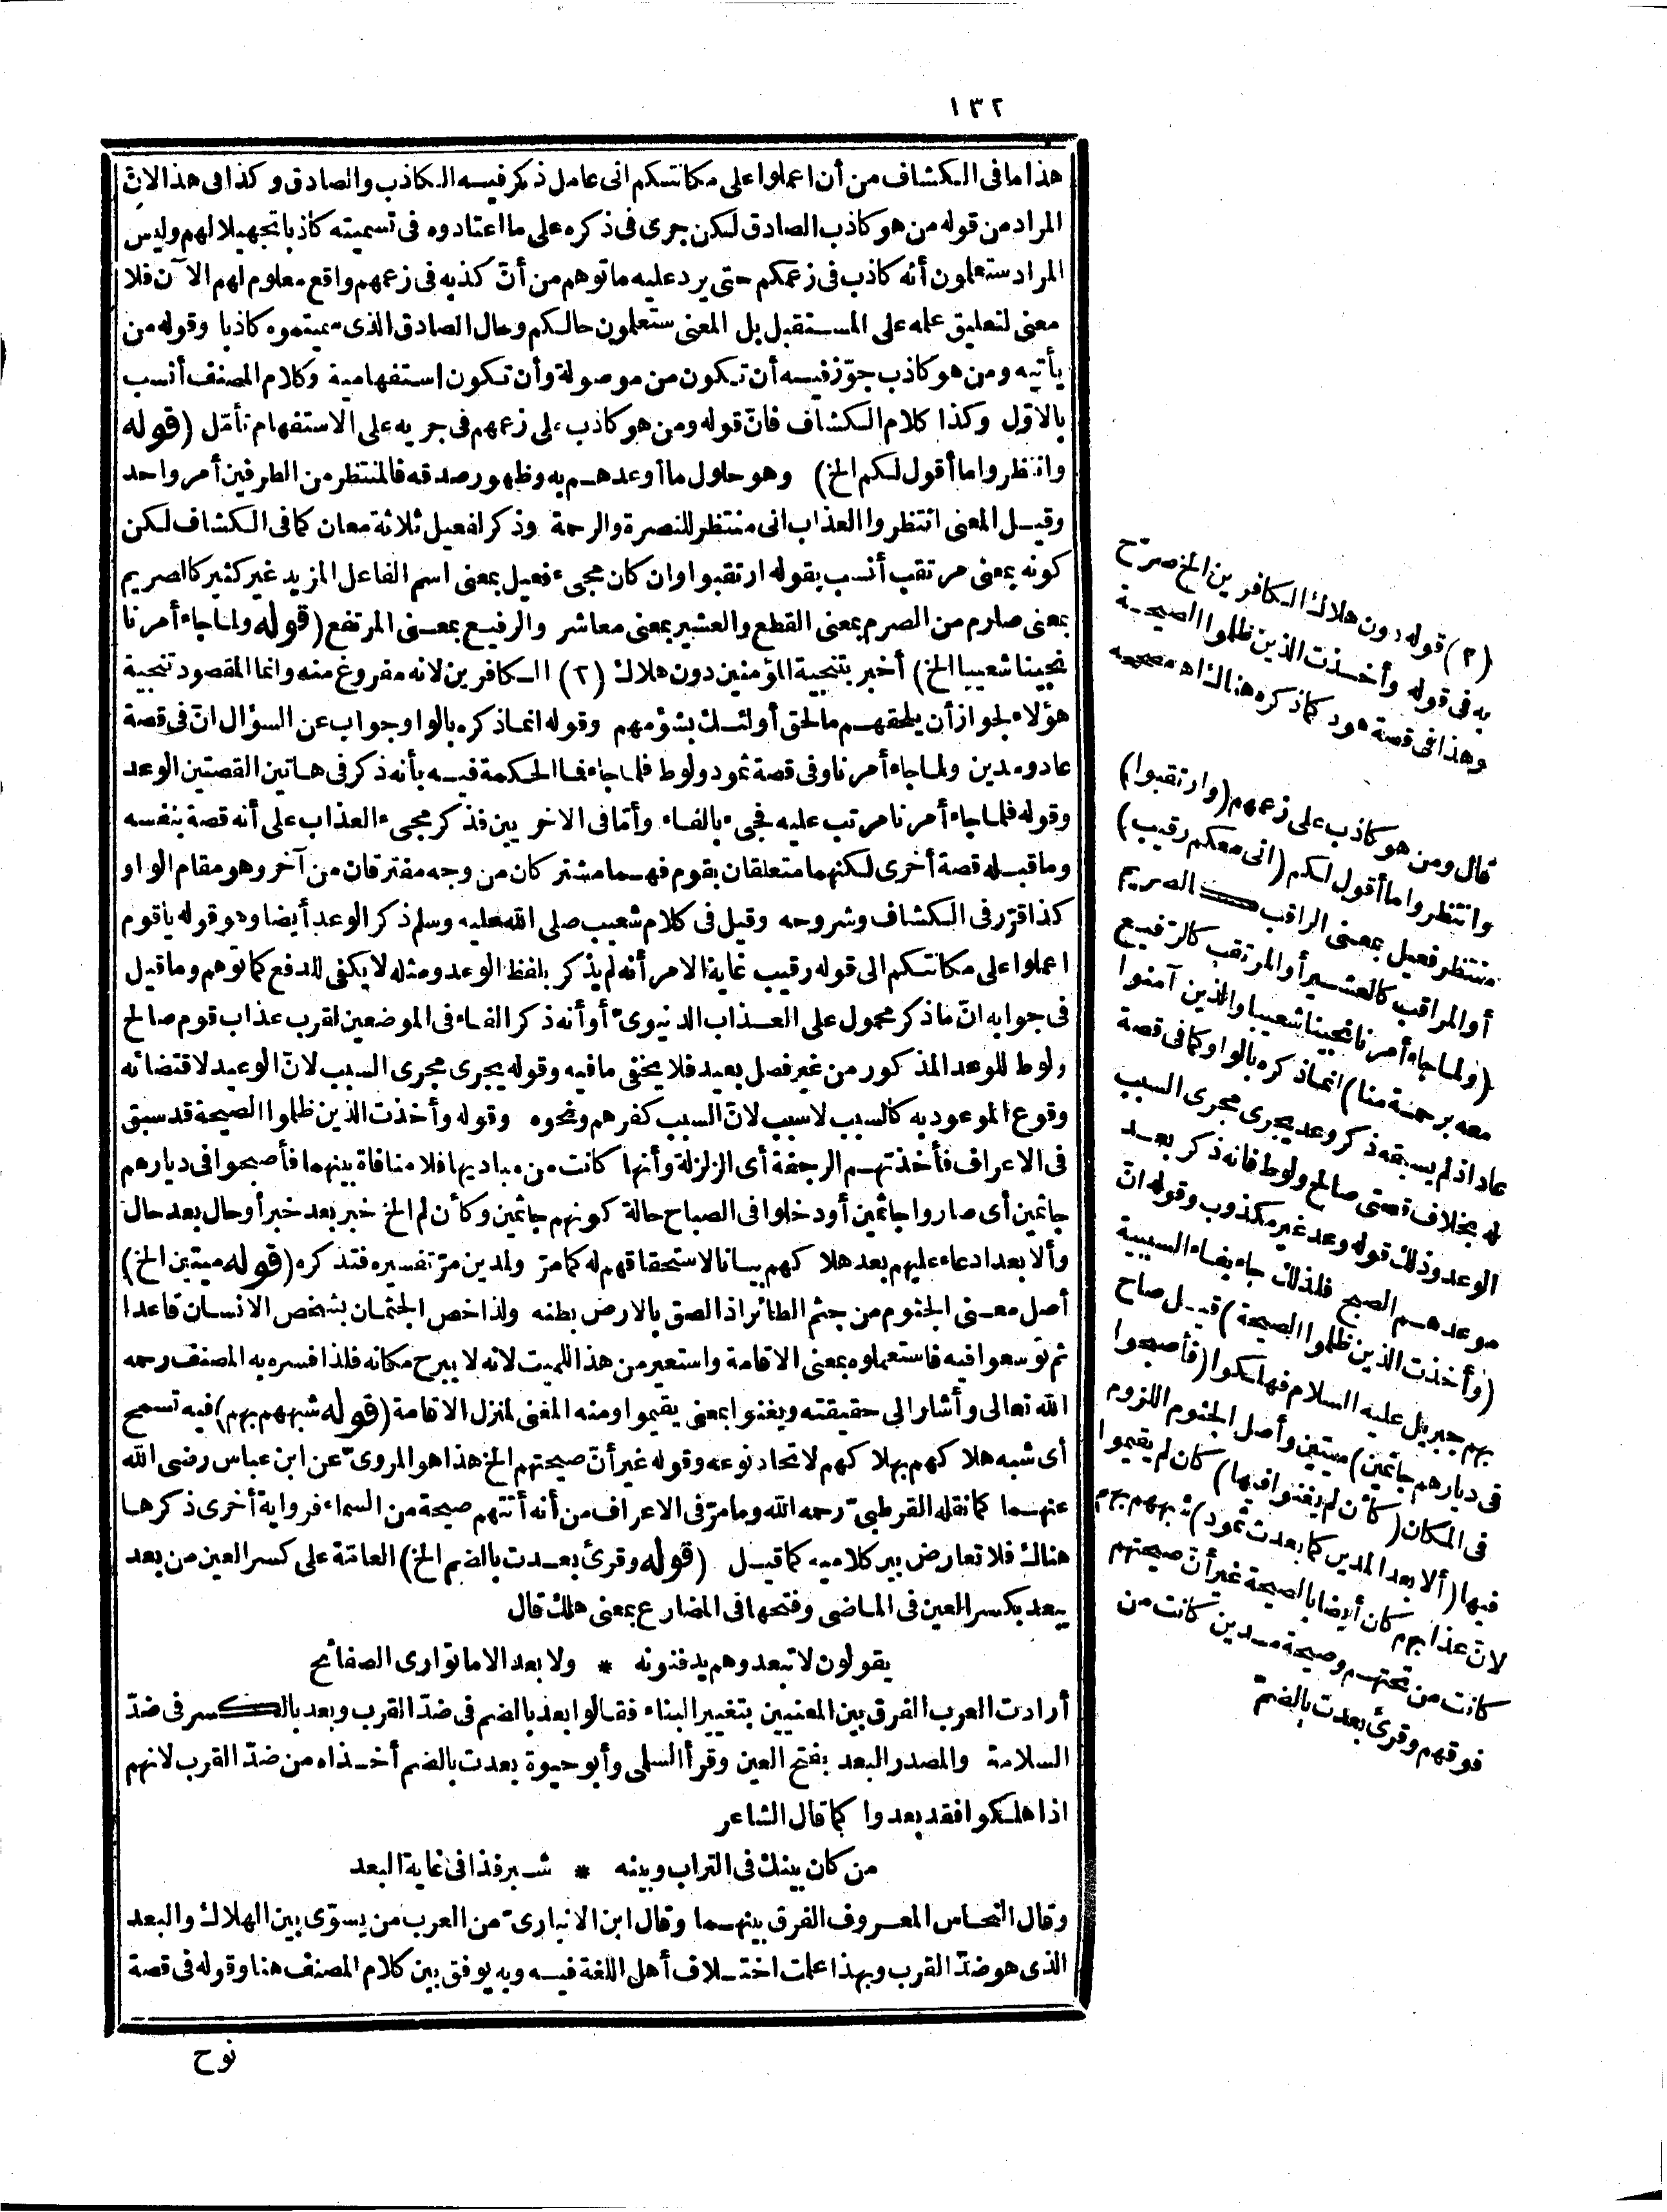 ١٣٢
هذا ما فى الكشاف من أن اعملوا على مكانتكم انى عامل ذكر فيه الكاذب والصادق وكذا فى هذا لانّ
المراد من قوله من هو كاذب الصادق لكن جرى فى ذكره على ما اعتادوه فى تسميته كاذبا تجهيلا لهم وليس
المراد ستعلمون أنه كاذب فى زعمكم حتى يرد عليه ما توهم من أنّ كذبه فى زعمهم واقع معلوم لهم الآن فلا
معنى لتعليق علمه على المستقبل بل المعنى ستعلمون حالكم وحال الصادق الذى سميتموه كاذبا وقوله من
يأتيه ومن هو كاذب جوّز فيه أن تكون من موصولة وأن تكون استفهامية وكلام المصنف أنسب
بالاوّل وكذا كلام الكشاف فانّ قوله ومن هو كاذب على زعمهم فى جريه على الاستفهام تأمّل (قوله
وانتظروا ما أقول لكم الخ) وهو حلول ما أوعدهم به وظهور صدقه فالمنتظر من الطرفين أمر واحد
وقيل المعنى انتظروا العذاب انى منتظر للنصرة والرحمة وذكر لفعيل ثلاثة معان كما فى الكشاف لكن
كونه بمعنى مرتقب أنسب بقوله ارتقبوا وان كان مجىء فعيل بمعنى اسم الفاعل المزيد غير كثير كالصريم
بمعنى صارم من الصرم بمعنى القطع والعشير بمعنى معاشر والرفيع بمعنى المرتفع (قوله ولما جاء أمرنا
نجينا شعيبا الخ) أخبر بتنجية المؤمنين دون هلاك (٢) الكافرين لانه مفروغ منه وانما المقصود تنجية
هؤلاء لجواز أن يلحقهم ما لحق أولئك بشؤمهم وقوله انما ذكره بالواو جواب عن السؤال انّ فى قصة
عاد ومدين ولما جاء أمرنا وفى قصة ثمود ولوط فلما جاء فما الحكمة فيه بأنه ذكر فى هاتين القصتين الوعد
وقوله فلما جاء أمرنا مرتب عليه فجىء بالفاء وأمّا فى الاخريين فذكر مجىء العذاب على أنه قصة بنفسه
وما قبله قصة أخرى لكنهما متعلقان بقوم فهما مشتركان من وجه مفترقان من آخر وهو مقام الواو
كذا قرّر فى الكشاف وشروحه وقيل فى كلام شعيب صلى الله عليه وسلم ذكر الوعد أيضا وهو قوله ياقوم
اعملوا على مكانتكم الى قوله رقيب غاية الامر أنه لم يذكر بلفظ الوعد ومثله لا يكفى للدفع كما توهم وما قيل
فى جوابه انّ ما ذكر محمول على العذاب الدنيوىّ أو أنه ذكر الفاء فى الموضعين لقرب عذاب قوم صالح
ولوط للوعد المذكور من غير فصل بعيد فلا يخفى ما فيه وقوله يجرى مجرى السبب لانّ الوعيد لاقتضائه
وقوع الموعود به كالسبب لا سبب لانّ السبب كفرهم ونحوه وقوله وأخذت الذين ظلموا الصيحة قد سبق
فى الاعراف فأخذتهم الرجفة أى الزلزلة وأنها كانت من مباديها فلا منافاة بينهما فأصبحوا فى ديارهم
جاثمين أى صاروا جاثمين أو دخلوا فى الصباح حالة كونهم جاثمين وكأن لم الخ خبر بعد خبر أو حال بعد حال
وألا بعدا دعاء عليهم بعد هلاكهم بيانا لاستحقاقهم له كما مرّ ولمدين مرّ تفسيره فتذكره (قوله ميتين الخ)
أصل معنى الجثوم من جثم الطائر اذا لصق بالارض بطنه ولذا خص الجثمان بشخص الانسان قاعدا
ثم توسعوا فيه فاستعملوه بمعنى الاقامة واستعير من هذا للميت لانه لا يبرح مكانه فلذا فسره به المصنف رحمه
الله تعالى وأشار الى حقيقته ويغنوا بمعنى يقيموا ومنه المغنى لمنزل الاقامة (قوله شبههم بهم) فيه تسمح
أى شبه هلاكهم بهلاكهم لاتحاد نوعه وقوله غير أنّ صيحتهم الخ هذا هو المروىّ عن ابن عباس رضى الله
عنهما كما نقله القرطبىّ رحمه الله وما مرّ فى الاعراف من أنه أتتهم صيحة من السماء فرواية أخرى ذكرها
هنالك فلا تعارض بين كلاميه كما قيل (قوله وقرئ بعدت بالضم الخ) العامّة على كسر العين من بعد
يبعد بكسر العين فى الماضى وفتحها فى المضارع بمعنى هلك قال
يقولون لا تبعد وهم يدفنونه * ولا بعد الا ما توارى الصفائح
أرادت العرب الفرق بين المعنيين بتغيير البناء فقالوا بعد بالضم فى ضدّ القرب وبعد بالكسر فى ضدّ
السلامة والمصدر البعد بفتح العين وقرأ السلمى وأبو حيوة بعدت بالضم أخذاه من ضدّ القرب لانهم
اذا هلكوا فقد بعدوا كما قال الشاعر
من كان بينك فى التراب وبينه * شبر فذا فى غاية البعد
وقال النحاس المعروف الفرق بينهما وقال ابن الانبارىّ من العرب من يسوّى بين الهلاك والبعد
الذى هو ضدّ القرب وبهذا علمت اختلاف أهل اللغة فيه وبه يوفق بين كلام المصنف هنا وقوله فى قصة
نوح
(٢) قوله دون هلاك الكافرين الخ صرّح
به فى قوله وأخذت الذين ظلموا الصيحة
وهذا فى قصة هود كما ذكره هنالك اه مصححه
قال ومن هو كاذب على زعمهم (وارتقبوا)
وانتظروا ما أقول لكم (انى معكم رقيب)
منتظر فعيل بمعنى الراقب كالصريم
أو المراقب كالعشير أو المرتقب كالرفيع
(ولما جاء أمرنا نجينا شعيبا والذين آمنوا
معه برحمة منا) انما ذكره بالواو كما فى قصة
عاد اذ لم يسبقه ذكر وعد يجرى مجرى السبب
له بخلاف قصتى صالح ولوط فانه ذكر بعد
الوعد وذلك قوله وعد غير مكذوب وقوله انّ
موعدهم الصبح فلذلك جاء بفاء السببية
(وأخذت الذين ظلموا الصيحة) قيل صاح
بهم جبريل عليه السلام فهلكوا (فأصبحوا
فى ديارهم جاثمين) ميتين وأصل الجثوم اللزوم
فى المكان (كأن لم يغنوا فيها) كأن لم يقيموا
فيها (ألا بعدا لمدين كما بعدت ثمود) شبههم بهم
لانّ عذابهم كان أيضا بالصيحة غير أنّ صيحتهم
كانت من تحتهم وصيحة مدين كانت من
فوقهم وقرئ بعدت بالضمّ